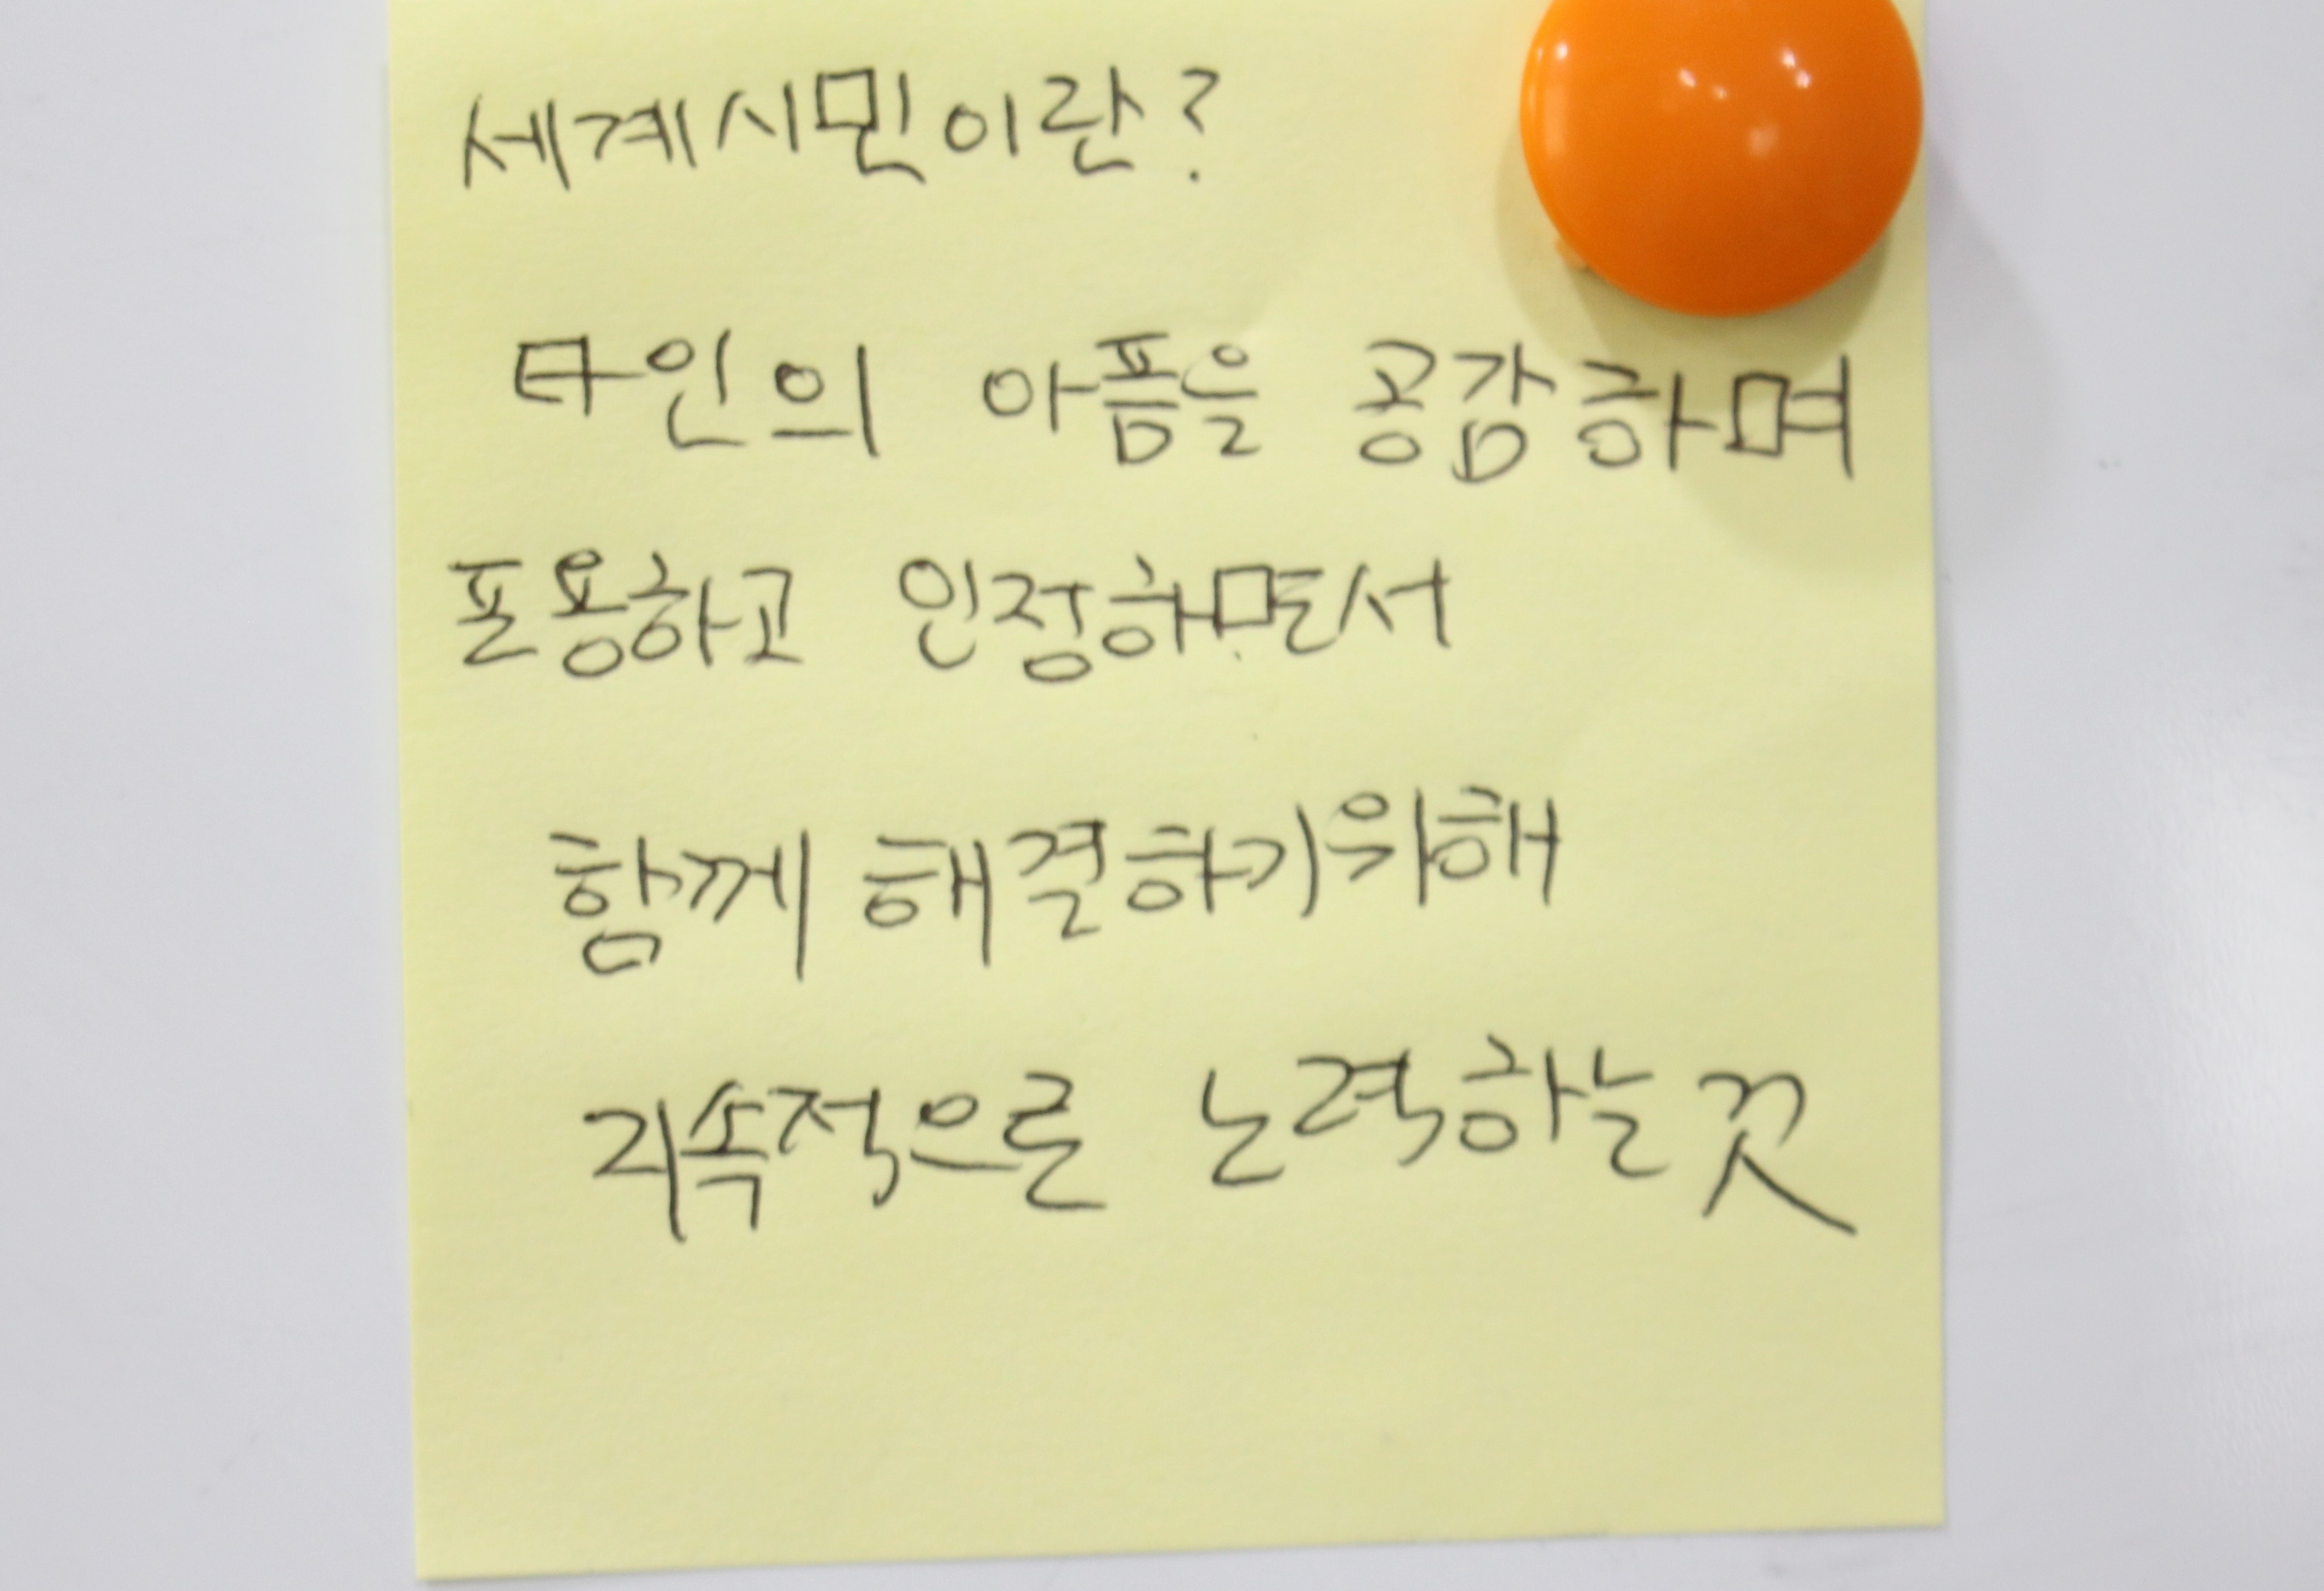 세계시민이란?
타인의 아픔을 공감하며
포용하고 인정하면서
함께 해결하기위해
지속적으로 노력하는것